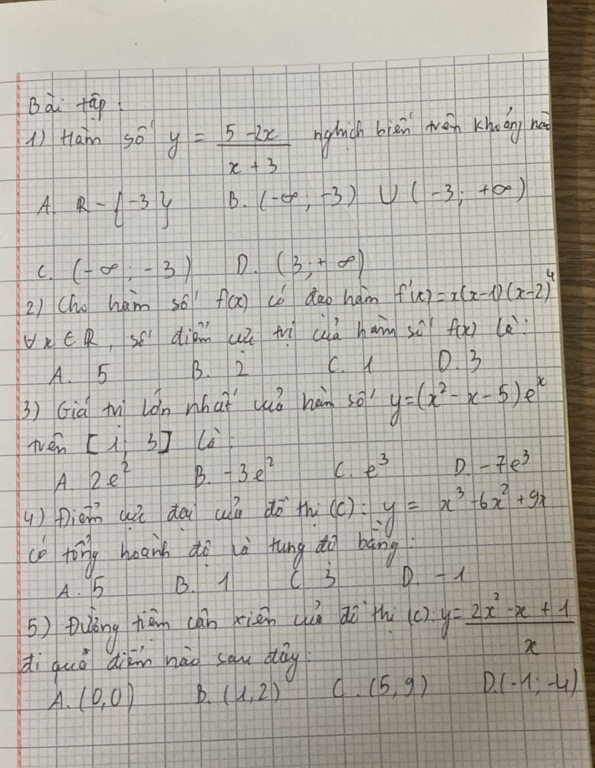 Bài tập:
1) Hàm số y = \frac{5-2x}{x+3} nghịch biến trên khoảng nào
A. R-{-3} B. (-∞; -3) ∪ (-3; +∞)
C. (-∞; -3) D. (3; +∞)
2) Cho hàm số f(x) có đạo hàm f'(x)=x(x-1)(x-2)⁴
∀x∈R, số điểm cực trị của hàm số f(x) là:
A. 5 B. 2 C. 1 D. 3
3) Giá trị lớn nhất của hàm số y=(x²-x-5)eˣ
trên [1; 3] là:
A. 2e² B. -3e² C. e³ D. -7e³
4) Điểm cực đại của đồ thị (C): y = x³-6x²+9x
có tổng hoành độ và tung độ bằng:
A. 5 B. 1 C 3 D. -1
5) Đường tiệm cận xiên của đồ thị (C): y=\frac{2x²-x+1}{x}
đi qua điểm nào sau đây:
A. (0,0) B. (1,2) C. (5,9) D.(-1; -4)